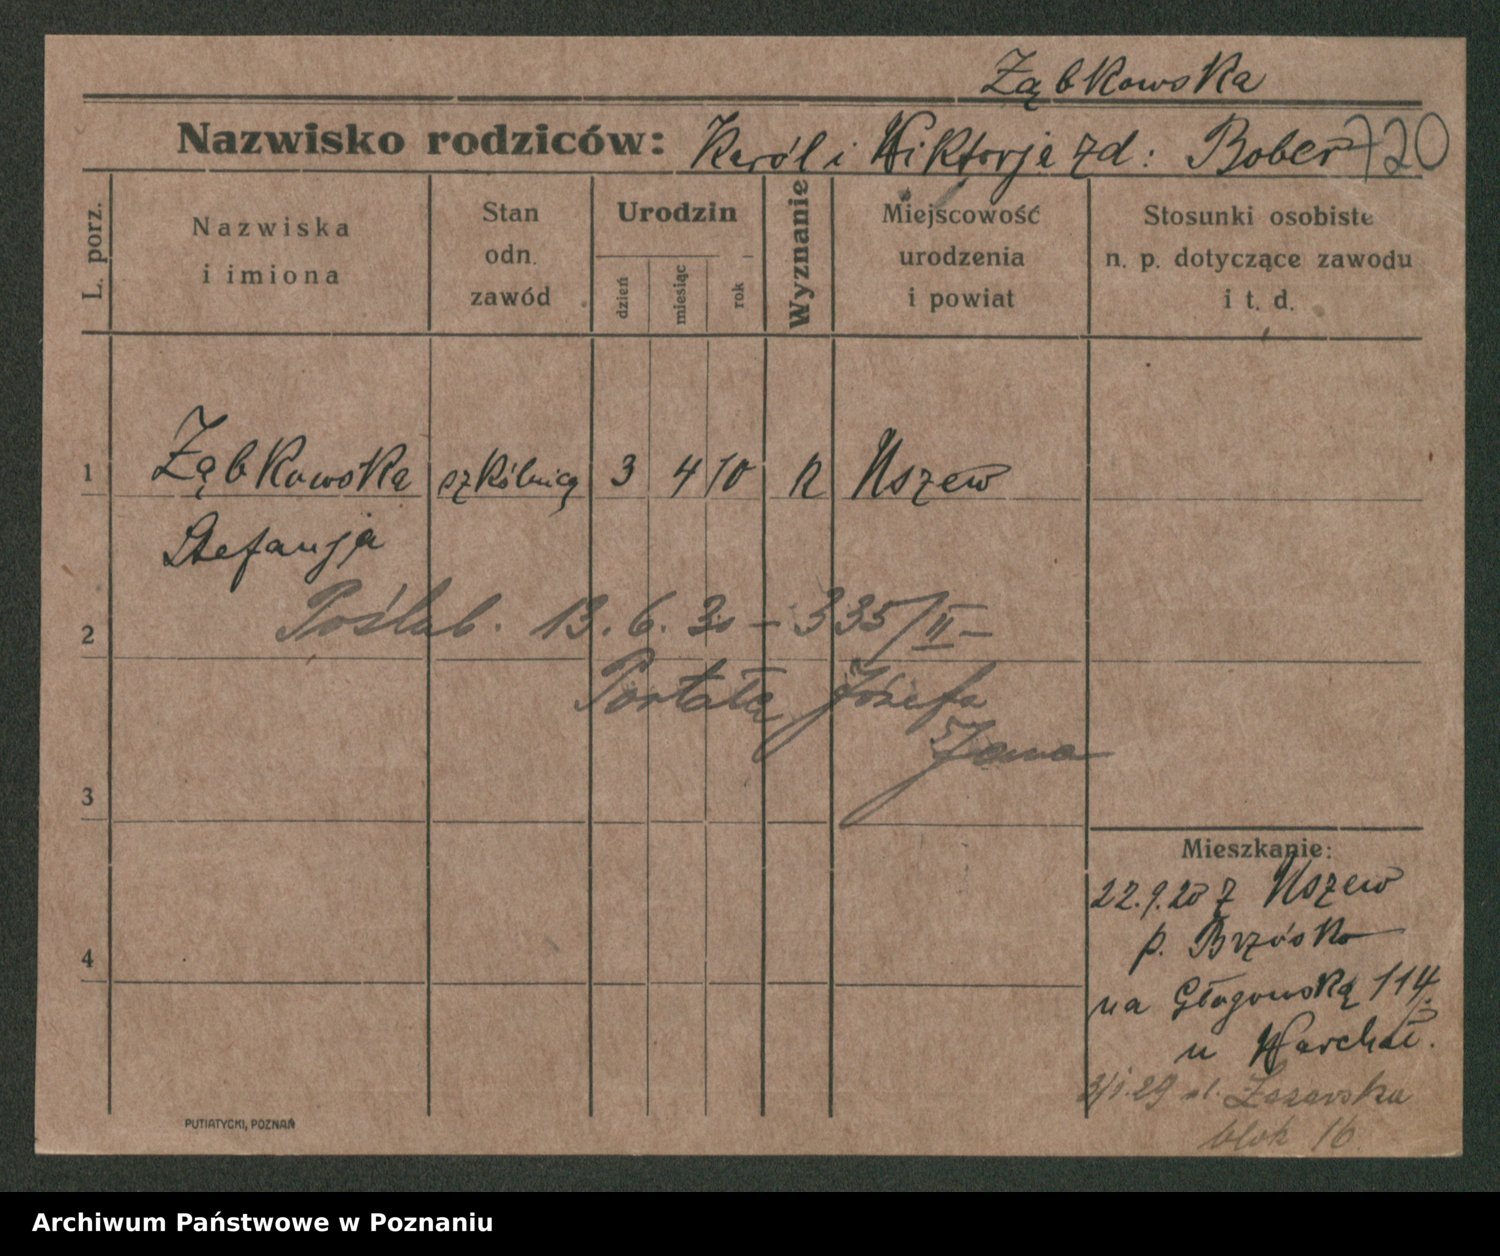 Ząbkowska
Nazwisko rodziców: Karól i Wiktorja zd: Bober 720
L. porz.
Nazwiska
i imiona
Stan
odn.
zawód
Urodzin
dzień
miesiąc
rok
Wyznanie
Miejscowość
urodzenia
i powiat
Stosunki osobiste
n. p. dotyczące zawodu
i t. d.
1 Ząbkowska szkólnicą 3 4 10 R Uszew
Stefanja
Poślub. 13.6.30 – 335/II –
2
Portałę Józefa
Jana
3
Mieszkanie:
22.9.20 z Uszew
p. Brzósko
4
na Głogowską 114
u Warchoł.
3/1.29 ul. Łazarska
blok 16
PUTIATYCKI, POZNAŃ
Archiwum Państwowe w Poznaniu